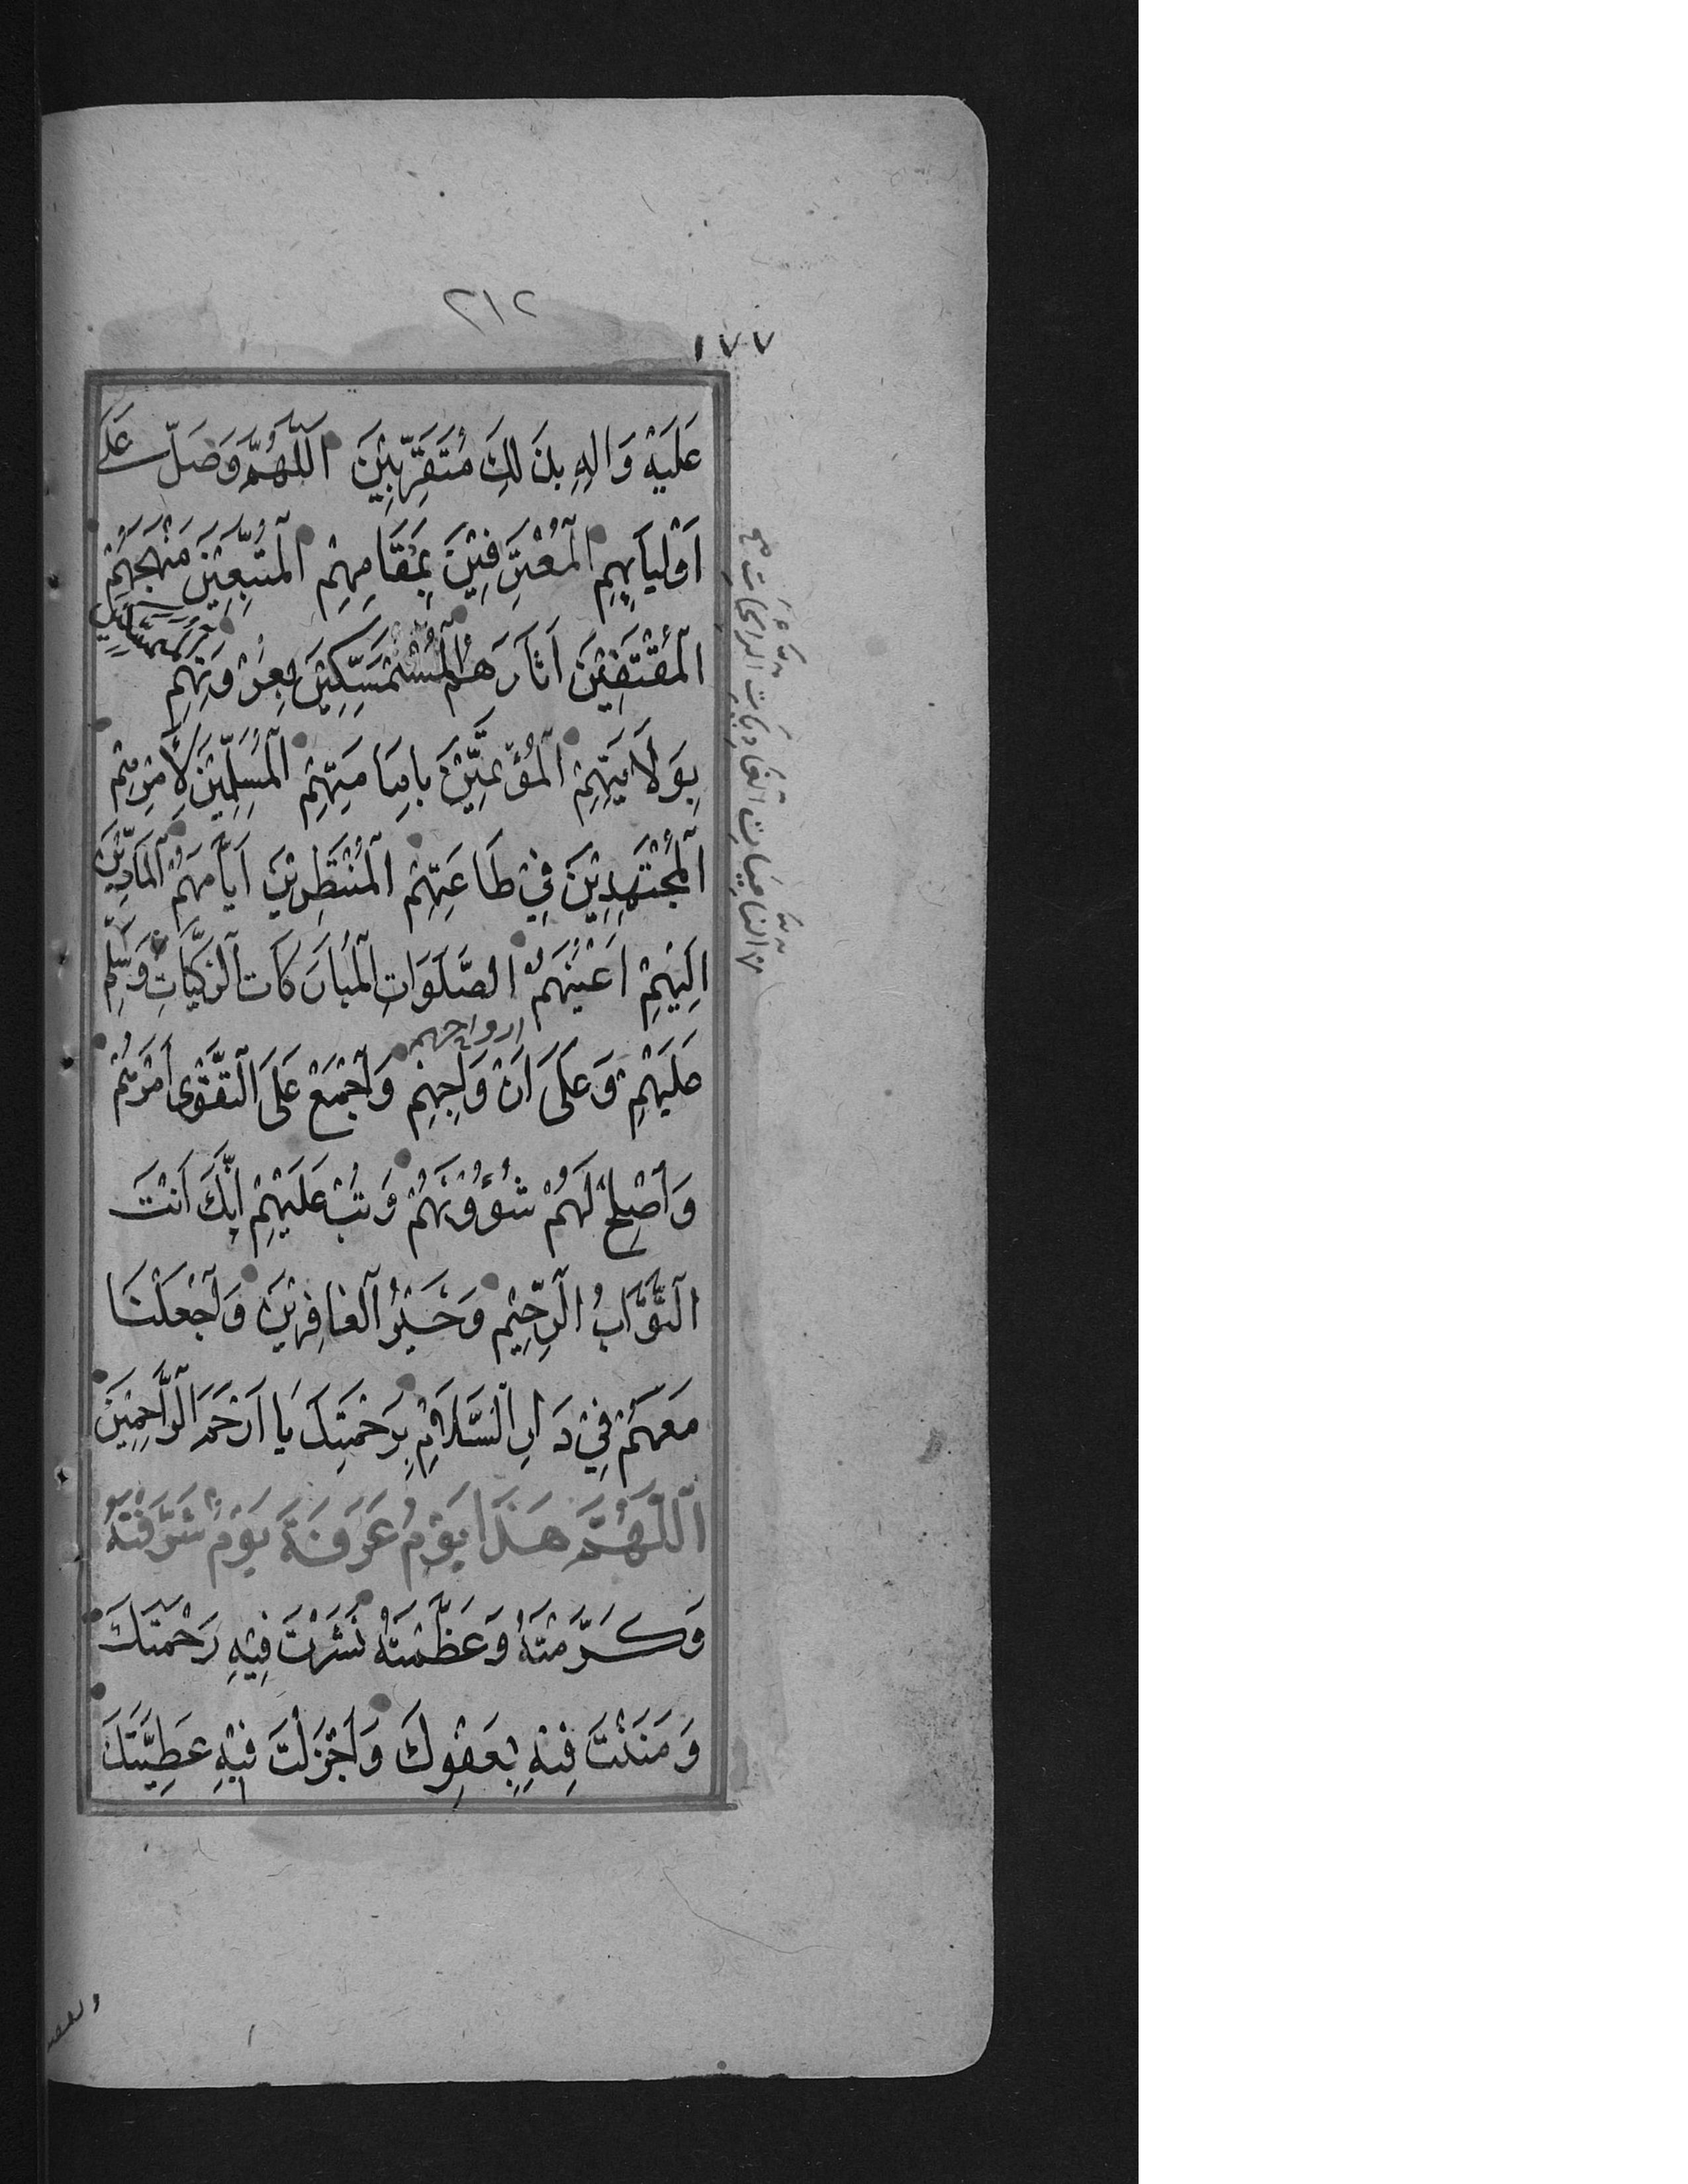 ٢١٢
١٧٧
عَلَيْهِ وَالِهِ بِذَلِكَ مُتَقَرِّبِيْنَ اَللّهُمَّ وَصَلِّ عَلَى
اَوْلِيَآئِهِمِ الْمُعْتَرِفِيْنَ بِمَقَامِهِمِ الْمُتَّبِعِيْنَ مَنْهَجَهُمْ
الْمُقْتَفِيْنَ اثَارَهُمُ الْمُسْتَمْسِكِيْنَ بِعُرْوَتِهِمِ الْمُتَمَسِّكِيْنَ
بِوَلَايَتِهِمِ الْمُؤْتَمِّيْنَ بِاِمَامَتِهِمِ الْمُسَلِّمِيْنَ لِأَمْرِهِمِ
الْمُجْتَهِدِيْنَ فِيْ طَاعَتِهِمِ الْمُنْتَظِرِيْنَ اَيَّامَهُمُ الْمَادِّيْنَ
اِلَيْهِمْ اَعْيُنَهُمُ الصَّلَوَاتِ الْمُبَارَكَاتِ الزَّكِيَّاتِ وَسَلِّمْ
عَلَيْهِمْ وَعَلَى اَرْوَاحِهِمْ وَاجْمَعْ عَلَى التَّقْوٰى اَمْرَهُمْ
ارواحهم
وَاَصْلِحْ لَهُمْ شُؤُوْنَهُمْ وَتُبْ عَلَيْهِمْ اِنَّكَ اَنْتَ
التَّوَّابُ الرَّحِيْمُ وَخَيْرُ الْغَافِرِيْنَ وَاجْعَلْنَا
مَعَهُمْ فِيْ دَارِ السَّلَامِ بِرَحْمَتِكَ يَا اَرْحَمَ الرَّاحِمِيْنَ
اَللّهُمَّ هَذَا يَوْمُ عَرَفَةَ يَوْمٌ شَرَّفْتَهُ
وَكَرَّمْتَهُ وَعَظَّمْتَهُ نَشَرْتَ فِيْهِ رَحْمَتَكَ
وَمَنَنْتَ فِيْهِ بِعَفْوِكَ وَاَجْزَلْتَ فِيْهِ عَطِيَّتَكَ
النَّامِيَاتِ الْغَادِيَاتِ الرَّائِحَاتِ